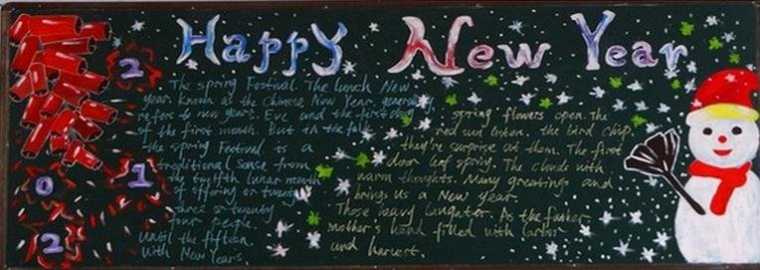 Happy New Year
2
0
1
2
The spring Festival. The lunch New
year known as the Chinese New Year, generally
refers to new years. Eve and the first day
of the first month. But in the folk
the spring Festival is a
traditional sense from
the twelfth lunar month
of offering or twenty
three or twenty
four people.
until the fifteen
With New Years
spring flowers open. The
red sun listen. the bird chip
they're surprise at them. The first
door leaf spring. The clouds with
warm thoughts. Many greetings and
brings us a New year.
Those heavy laughter. As the father
mother's hand filled with labor
and harvest.